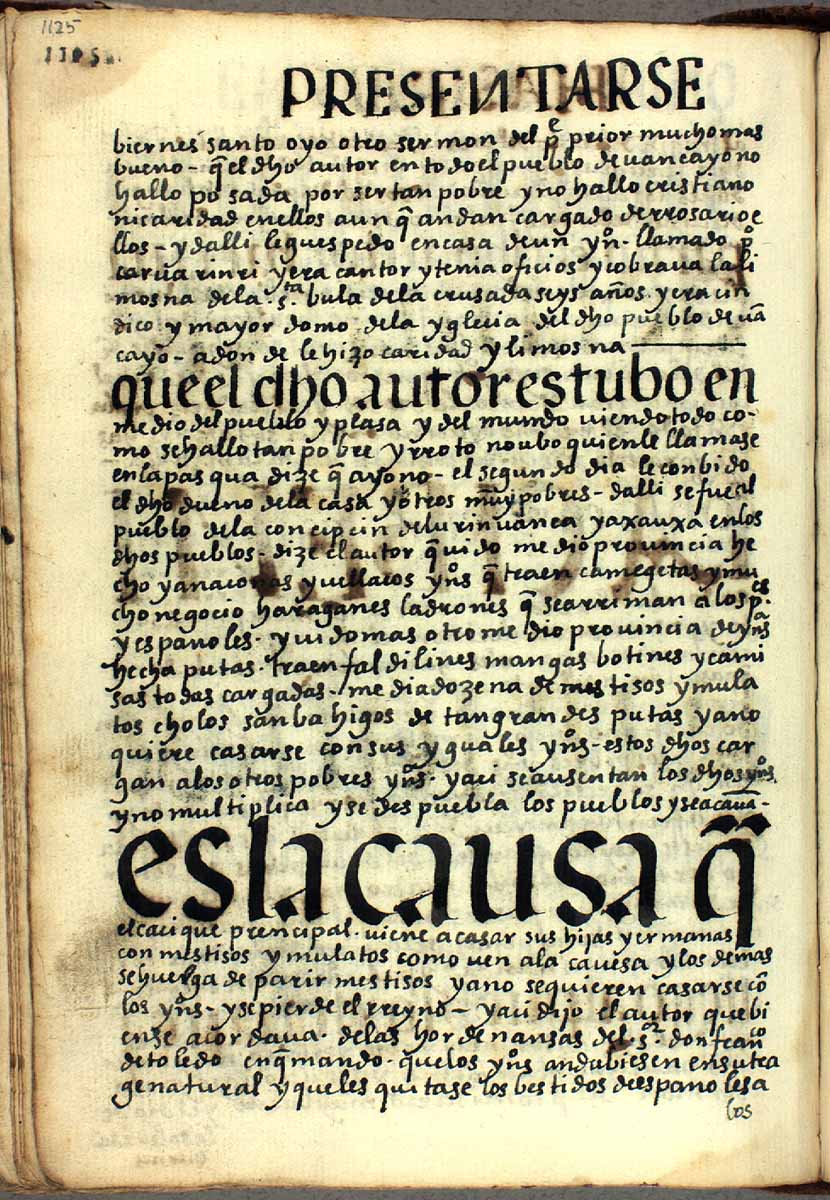 1125
1105
PRESENTARSE
biernes santo oyo otro sermon del pe prior mucho mas
bueno - q̃ el dho autor en todo el pueblo de uancayo no
hallo posada por ser tan pobre y no hallo cristiano
ni caridad en ellos aunq̃ andan cargado de rrosario e
llos - y dalli le guespedo en casa de un yno. llamado po
carua rinri y era cantor y tenia oficios y cobraua la li
mosna de la sta bula de la crusada seys años. y era cin
dico y mayor domo de la yglecia del dho pueblo de uã
cayo - adonde le hizo caridad y limosna
que el dho autor estubo en
medio del pueblo y plasa y del mundo uiendo todo co-
mo se hallo tan pobre y rroto no ubo quien le llamase
en la pasqua dize q̃ ayono - el segundo dia le conbido
el dho dueno de la casa y otros muy pobres - dalli se fue al
pueblo de la concipcin de lurin uanca ya xauxa en los
dhos pueblos - dize el autor q̃ uido medio prouincia he
cho yanaconas y uellacos ynos q̃ traen camegetas y mu
cho negocio haraganes ladrones q̃ se arriman a los pes
y espanoles - y uido mas otro medio prouincia de ynas
hecha putas. traen faldilines mangas botines y cami
sas todas cargadas - media dozena de mestisos y mula
tos cholos sanbahigos de tan grandes putas ya no
quiere casarse con sus yguales ynos - estos dhos car
gan a los otros pobres ynos. y aci se ausentan los dhos ynos
y no multiplica y se despuebla los pueblos y se acaua -
es la causa q̃
el cacique prencipal. uiene a casar sus hijas y ermanas
con mestisos y mulatos como uen a la cauesa y los demas
se huelga de parir mestisos ya no se quieren casarse cõ
los ynos - y se pierde el rreyno - y aci dijo el autor que bi
en se acordaua. de las hordenansas del sor don franco
de toledo en q̃ mando - que los ynos andubiesen en su tra
ge natural y que les quitase los bestidos de espanoles a
los